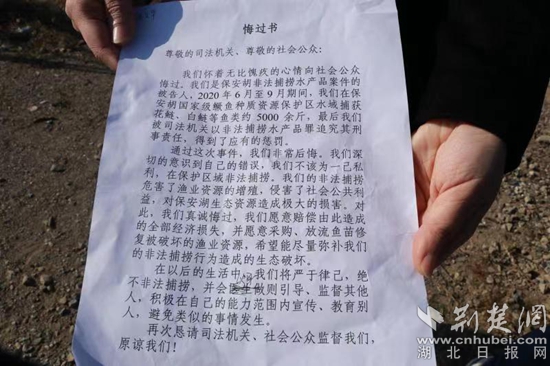 悔过书
尊敬的司法机关、尊敬的社会公众：
我们怀着无比愧疚的心情向社会公众
悔过。我们是保安胡非法捕捞水产品案件的
被告人，2020年6月至9月期间，我们在保
安胡国家级鳜鱼种质资源保护区水域捕获
花鲢、白鲢等鱼类约 5000 余斤，最后我们
被司法机关以非法捕捞水产品罪追究其刑
事责任，得到了应有的惩罚。
通过这次事件，我们非常后悔、我们深
切的意识到自己的错误，我们不该为一己私
利，在保护区域非法捕捞。我们的非法捕捞
危害了渔业资源的增殖，侵害了社会公共利
益，对保安湖生态资源造成极大的损害。对
此，我们真诚悔过，我们愿意赔偿由此造成
的全部经济损失，并愿意采购、放流鱼苗修
复被破坏的渔业资源，希望能尽量弥补我们
的非法捕捞行为造成的生态破坏。
在以后的生活中，我们将严于律己，绝
不非法捕捞，并会以身做则引导、监督其他
人，积极在自己的能力范围内宣传、教育别
人，避免类似的事情发生。
再次恳请司法机关、社会公众监督我们，
原谅我们！
荆楚网
www.cnhubei.com
湖北日报网